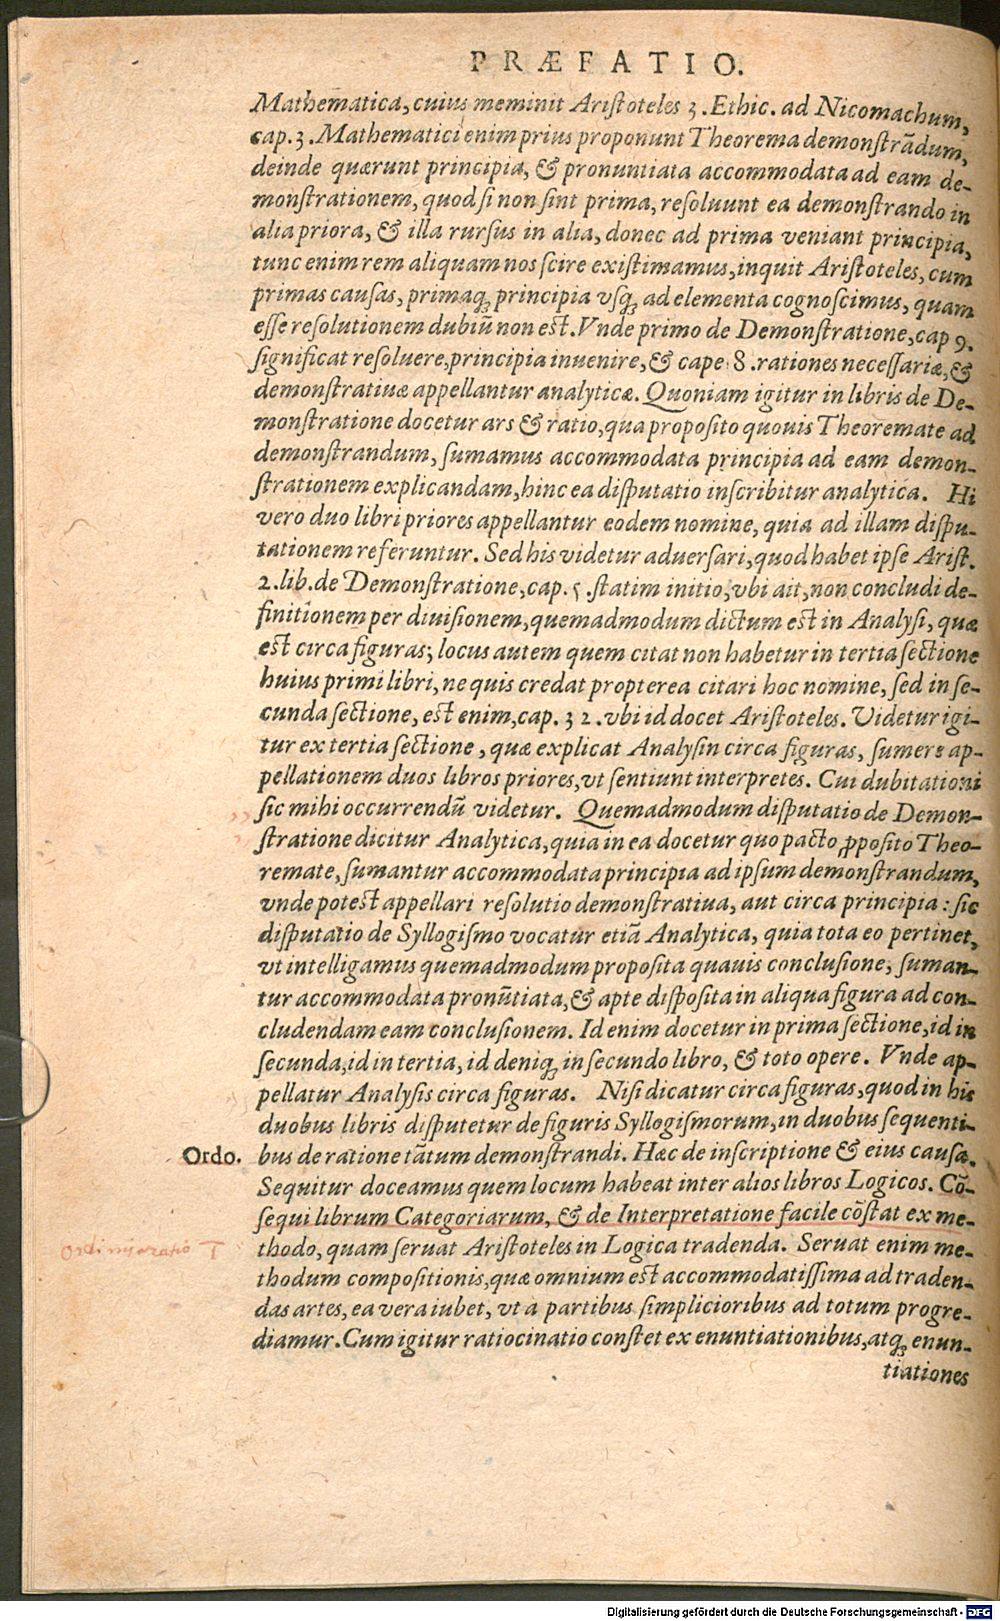 PRÆFATIO.
Mathematica, cuius meminit Aristoteles 3. Ethic. ad Nicomachum,
cap. 3. Mathematici enim prius proponunt Theorema demonstrādum,
deinde quærunt principia, & pronuntiata accommodata ad eam de-
monstrationem, quod si non sint prima, resoluunt ea demonstrando in
alia priora, & illa rursus in alia, donec ad prima veniant principia,
tunc enim rem aliquam nos scire existimamus, inquit Aristoteles, cum
primas causas, primaq; principia vsq; ad elementa cognoscimus, quam
esse resolutionem dubiū non est. Vnde primo de Demonstratione, cap 9.
significat resoluere, principia inuenire, & cape 8. rationes necessariæ, &
demonstratiuæ appellantur analyticæ. Quoniam igitur in libris de De-
monstratione docetur ars & ratio, qua proposito quouis Theoremate ad
demonstrandum, sumamus accommodata principia ad eam demon-
strationem explicandam, hinc ea disputatio inscribitur analytica. Hi
vero duo libri priores appellantur eodem nomine, quia ad illam dispu-
tationem referuntur. Sed his videtur aduersari, quod habet ipse Arist.
2. lib. de Demonstratione, cap. 5. statim initio, vbi ait, non concludi de-
finitionem per diuisionem, quemadmodum dictum est in Analysi, quæ
est circa figuras; locus autem quem citat non habetur in tertia sectione
huius primi libri, ne quis credat propterea citari hoc nomine, sed in se-
cunda sectione, est enim, cap. 32. vbi id docet Aristoteles. Videtur igi-
tur ex tertia sectione, quæ explicat Analysin circa figuras, sumere ap-
pellationem duos libros priores, vt sentiunt interpretes. Cui dubitationi
sic mihi occurrendū videtur. Quemadmodum disputatio de Demon-
stratione dicitur Analytica, quia in ea docetur quo pacto ꝓposito Theo-
remate, sumantur accommodata principia ad ipsum demonstrandum,
vnde potest appellari resolutio demonstratiua, aut circa principia: sic
disputatio de Syllogismo vocatur etiā Analytica, quia tota eo pertinet,
vt intelligamus quemadmodum proposita quauis conclusione, suman-
tur accommodata pronūtiata, & apte disposita in aliqua figura ad con-
cludendam eam conclusionem. Id enim docetur in prima sectione, id in
secunda, id in tertia, id deniq; in secundo libro, & toto opere. Vnde ap-
pellatur Analysis circa figuras. Nisi dicatur circa figuras, quod in his
duobus libris disputetur de figuris Syllogismorum, in duobus sequenti-
Ordo. bus de ratione tātum demonstrandi. Hæc de inscriptione & eius causa.
Sequitur doceamus quem locum habeat inter alios libros Logicos. Cō-
sequi librum Categoriarum, & de Interpretatione facile cōstat ex me-
thodo, quam seruat Aristoteles in Logica tradenda. Seruat enim me-
thodum compositionis, quæ omnium est accommodatissima ad traden-
das artes, ea vera iubet, vt a partibus simplicioribus ad totum progre-
diamur. Cum igitur ratiocinatio constet ex enuntiationibus, atq; enun-
tiationes
Digitalisierung gefördert durch die Deutsche Forschungsgemeinschaft - DFG